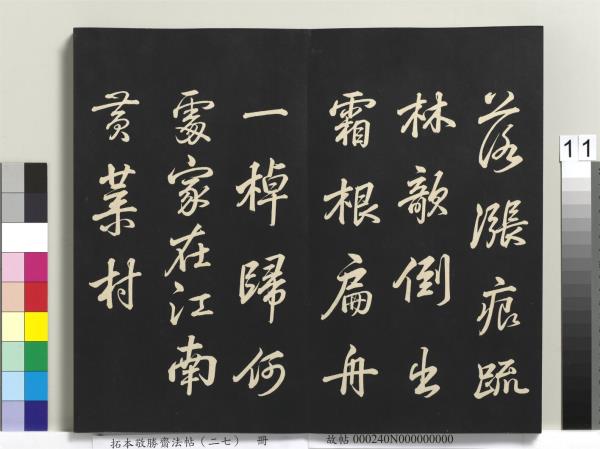 落漲痕疏
林欹倒出
霜根扁舟
一棹歸何
處家在江南
黃葉村
11
拓本敬勝齋法帖(二七) 冊
故帖 000240N000000000